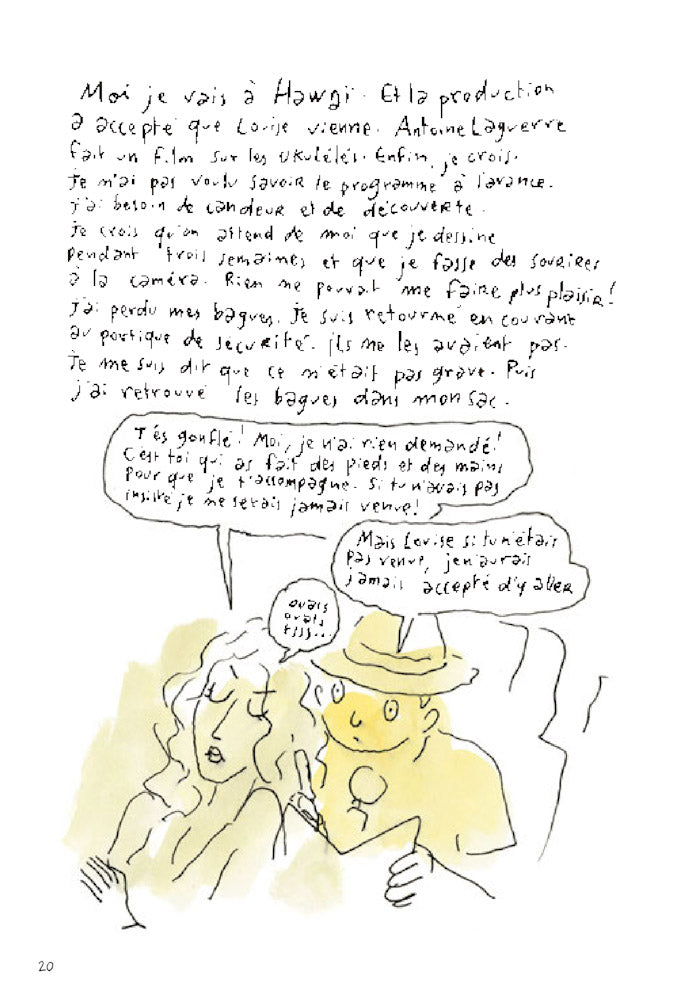 Moi je vais à Hawaï. Et la production
a accepté que Louise vienne. Antoine Laguerre
fait un film sur les ukulélés. Enfin, je crois.
Je n'ai pas voulu savoir le programme à l'avance.
j'ai besoin de candeur et de découverte.
Je crois qu'on attend de moi que je dessine
pendant trois semaines et que je fasse des sourires
à la caméra. Rien ne pouvait me faire plus plaisir !
J'ai perdu mes bagues. Je suis retourné en courant
au portique de sécurité. ils ne les avaient pas.
Je me suis dit que ce n'était pas grave. Puis
j'ai retrouvé les bagues dans mon sac.
T'es gonflé ! Moi, je n'ai rien demandé !
C'est toi qui as fait des pieds et des mains
pour que je t'accompagne. Si tu n'avais pas
insisté je ne serais jamais venue !
Mais Louise si tu n'étais
pas venue, je n'aurais
jamais accepté d'y aller
ouais
ouais
tsss...
20